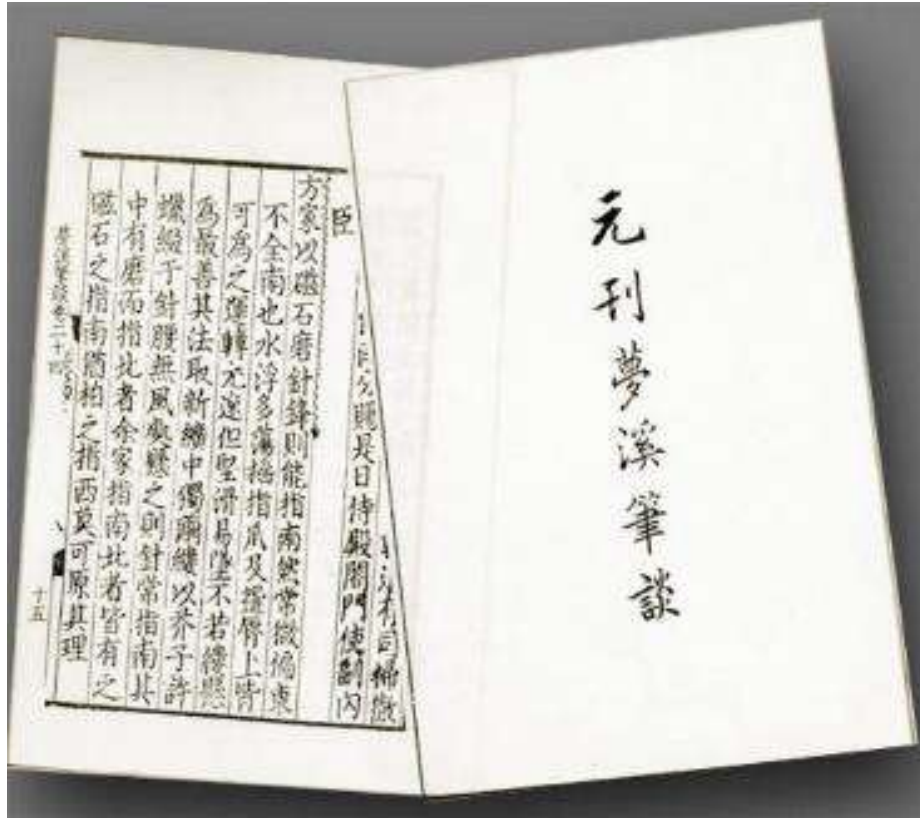 元刊夢溪筆談
司掃徹
是日待殿閤門使副内
臣
方家以磁石磨針鋒則能指南然常微偏東
不全南也水浮多蕩搖指爪及盌脣上皆
可為之運轉尤速但堅滑易墜不若縷懸
為最善其法取新纊中獨繭縷以芥子許
蠟綴于針腰無風處懸之則針常指南其
中有磨而指北者余家指南北者皆有之
磁石之指南猶柏之指西莫可原其理
夢溪筆談卷二十四
十五